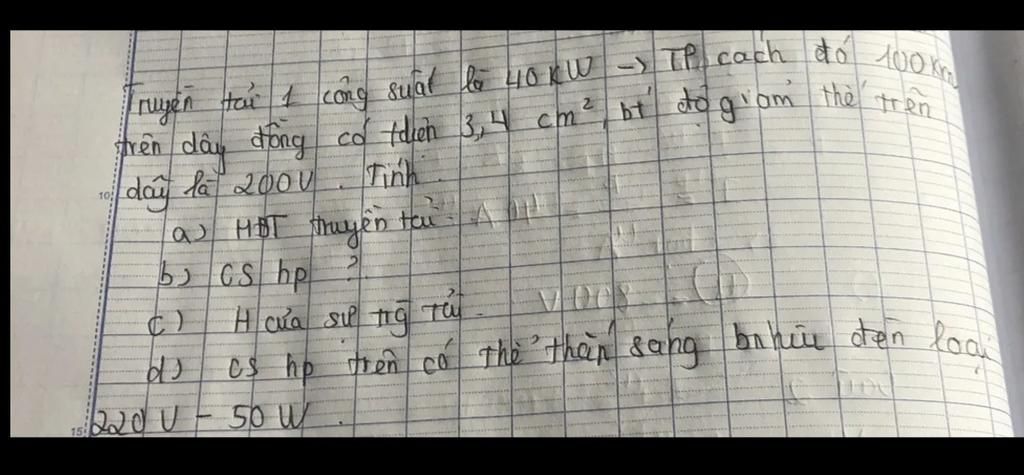 Truyền tải 1 công suất là 40KW → TP cách đó 100Km
trên dây đồng có tdiện 3,4 cm², bt độ giảm thế trên
dây là 200V. Tính.
a) HĐT truyền tải.
b) CS hp ?
c) H của sự tải.
d) CS hp trên có thể thắp sáng bnhiu đèn loại
220V - 50W.